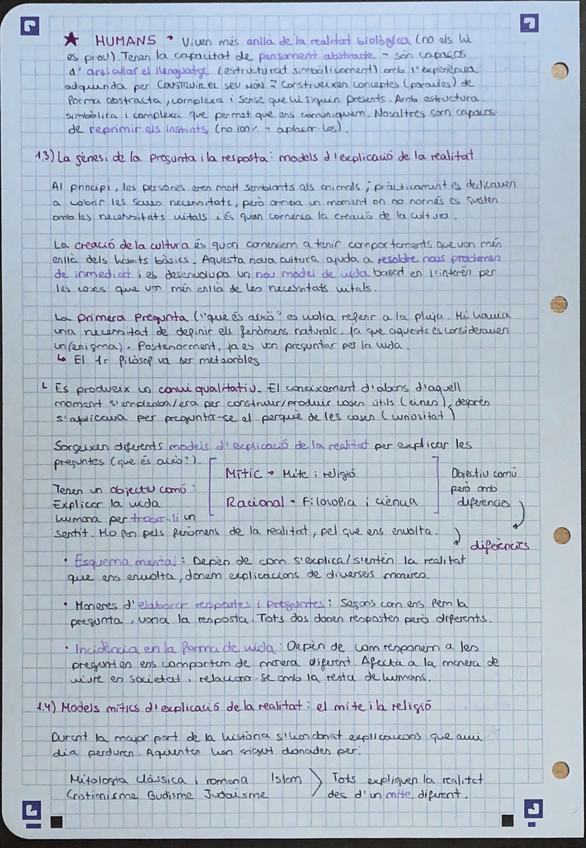 ★ HUMANS → Viuen més enllà de la realitat biològica (no als hi
és prou). Tenen la capacitat de pensament abstracte → són capaços
d'articular el llenguatge (estructurat simbòlicament) amb l'experiència
adquirida per CONSTRUIR EL SEU MÓN → Construeixen conceptes (paraules) de
forma abstracta, complexa i sense que hi siguin presents. Amb estructura
simbòlica i complexa que permet que ens comuniquem. Nosaltres som capaços
de reprimir els instints (no 100% → aplacar-los).
1.3) La gènesi de la pregunta i la resposta: models d'explicació de la realitat
Al principi, les persones eren molt semblants als animals; pràcticament es dedicaven
a cobrir les seves necessitats, però arriba un moment on no només es queden
amb les necessitats vitals i és quan comença la creació de la cultura.
La creació de la cultura és quan comencem a tenir comportaments que van més
enllà dels hàbits bàsics. Aquesta nova cultura ajuda a resoldre nous problemes
de immediat i es desenvolupa un nou model de vida basat en l'interès per
les coses que van més enllà de les necessitats vitals.
La primera pregunta ("què és això?") es volia referir a la pluja. Hi havia
una necessitat de definir els fenòmens naturals, ja que aquests es consideraven
un (enigma). Posteriorment, ja es van preguntar per la vida.
↳ El 1r filòsof va ser
↳ Es produeix un canvi qualitatiu. El coneixement d'abans d'aquell
moment s'empleaba/era per construir/produir coses útils (eines), després
s'aplicava per preguntar-se el perquè de les coses (curiositat)
Sorgeixen diferents models d'explicació de la realitat per explicar les
preguntes (què és això?).
Mític → Mite i religió
Racional → Filosofia i ciència
Objectiu comú
però amb
diferències
Tenen un objectiu comú:
Explicar la vida
humana per trobar-li un
sentit. Ho fan pels fenòmens de la realitat, pel que ens envolta.
diferències
• Esquema mental: Depèn de com s'explica/sentim la realitat
que ens envolta, donem explicacions de diverses maneres.
• Maneres d'elaborar respostes i preguntes: Segons com ens fem la
pregunta, varia la resposta. Tots dos donen respostes però diferents.
• Incidència en la forma de vida: Depèn de com responem a les
preguntes ens comportem de manera diferent. Afecta a la manera de
viure en societat i relacionar-se amb la resta de humans.
1.4) Models mítics d'explicació de la realitat: el mite i la religió
Durant la major part de la història s'han donat explicacions que avui
dia perduren. Aquestes han sigut donades per:
Mitologia clàssica i romana Islam
Cristianisme Budisme Judaisme
Tots expliquen la realitat
des d'un mite diferent.